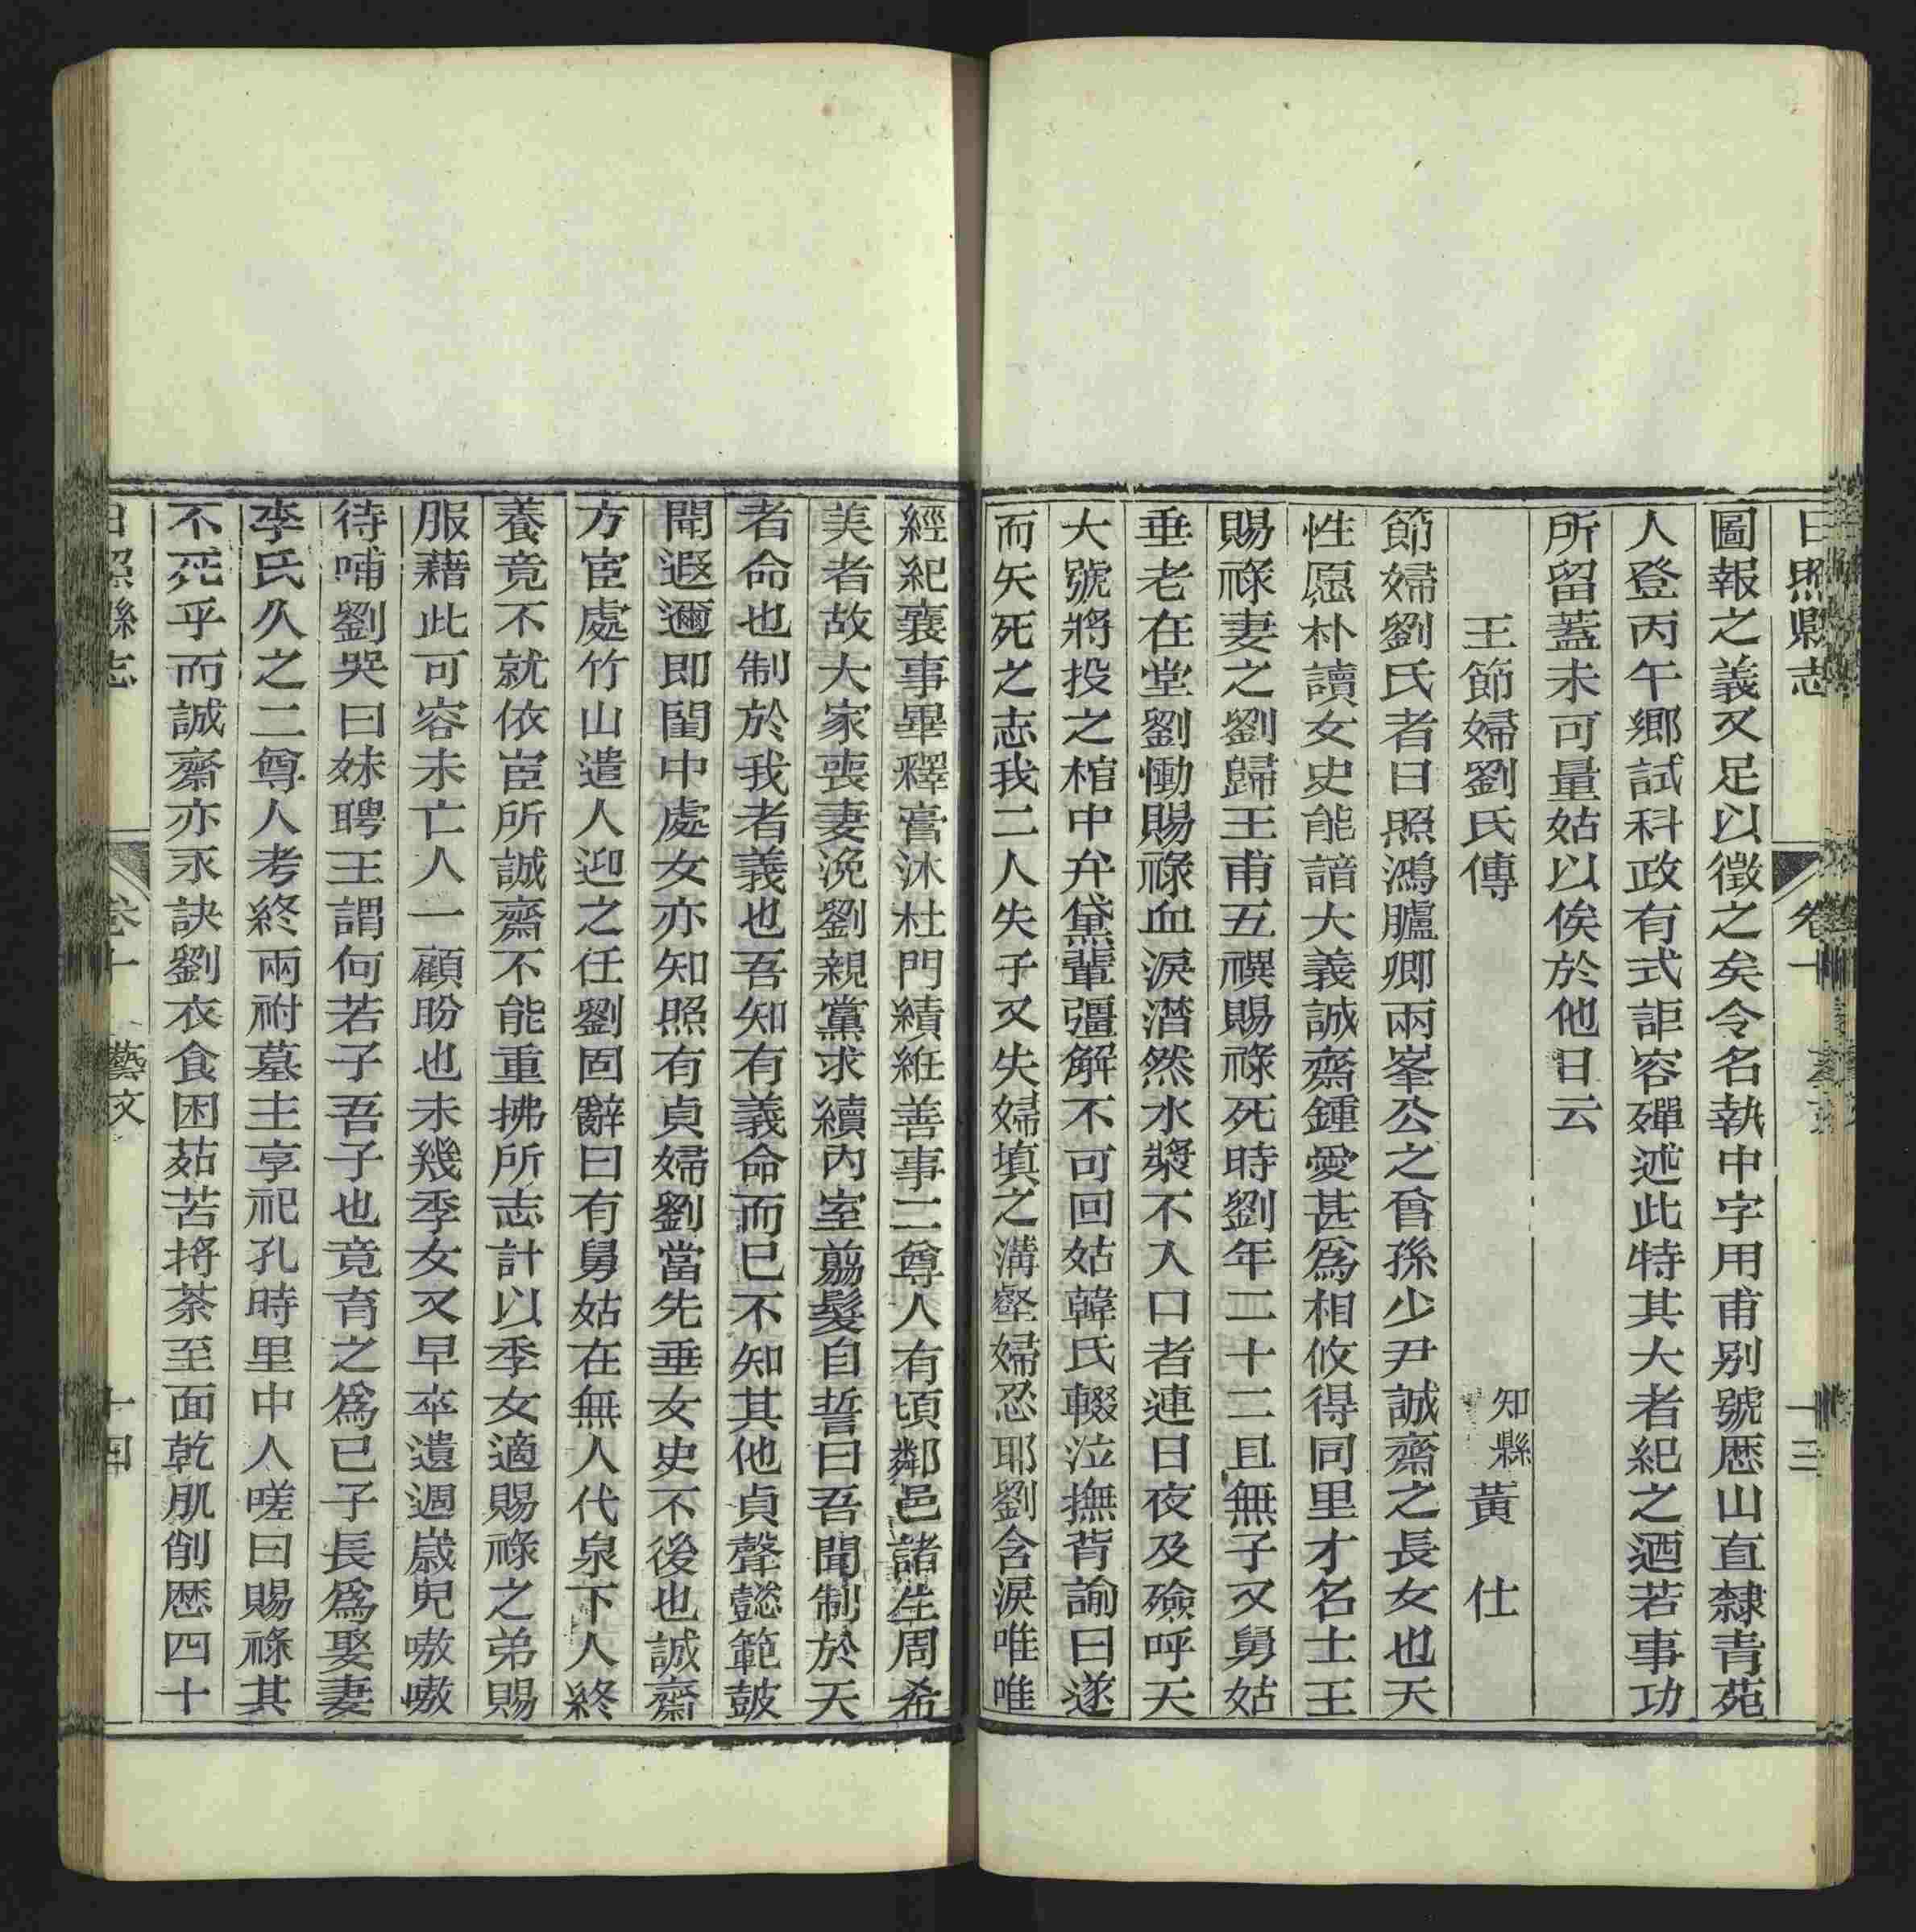 日照縣志 卷十 十三
圖報之義又足以徵之矣令名執中字用甫別號歷山直隸青苑
人登丙午鄉試科政有式詎容殫述此特其大者紀之迺若事功
所留蓋未可量姑以俟於他日云
王節婦劉氏傳 知縣黃仕
節婦劉氏者日照鴻臚卿兩峯公之曾孫少尹誠齋之長女也天
性愿朴讀女史能諳大義誠齋鍾愛甚爲相攸得同里才名士王
賜祿妻之劉歸王甫五禩賜祿死時劉年二十二且無子又舅姑
垂老在堂劉慟賜祿血淚潸然水漿不入口者連日夜及殮呼天
大號將投之棺中弁黛輩彊解不可回姑韓氏輟泣撫背諭曰遂
而矢死之志我二人失子又失婦塡之溝壑婦忍耶劉含淚唯唯
經紀襄事畢釋膏沐杜門績絍善事二尊人有頃鄰邑諸生周希
美者故大家喪妻浼劉親黨求續內室翦髮自誓曰吾聞制於天
者命也制於我者義也吾知有義命而已不知其他貞聲懿範皷
聞遐邇即閨中處女亦知照有貞婦劉當先垂女史不後也誠齋
方宦處竹山遣人迎之任劉固辭曰有舅姑在無人代泉下人終
養竟不就依宦所誠齋不能重拂所志計以季女適賜祿之弟賜
服藉此可容未亡人一顧盼也未幾季女又早卒遺週嵗兒嗷嗷
待哺劉哭曰妹聘王謂何若子吾子也竟育之爲已子長爲娶妻
李氏久之二尊人考終兩祔墓主享祀孔時里中人嗟曰賜祿其
不死乎而誠齋亦永訣劉衣食困茹苦將荼至面乾肌削歷四十
日照縣志 卷十 藝文 十四